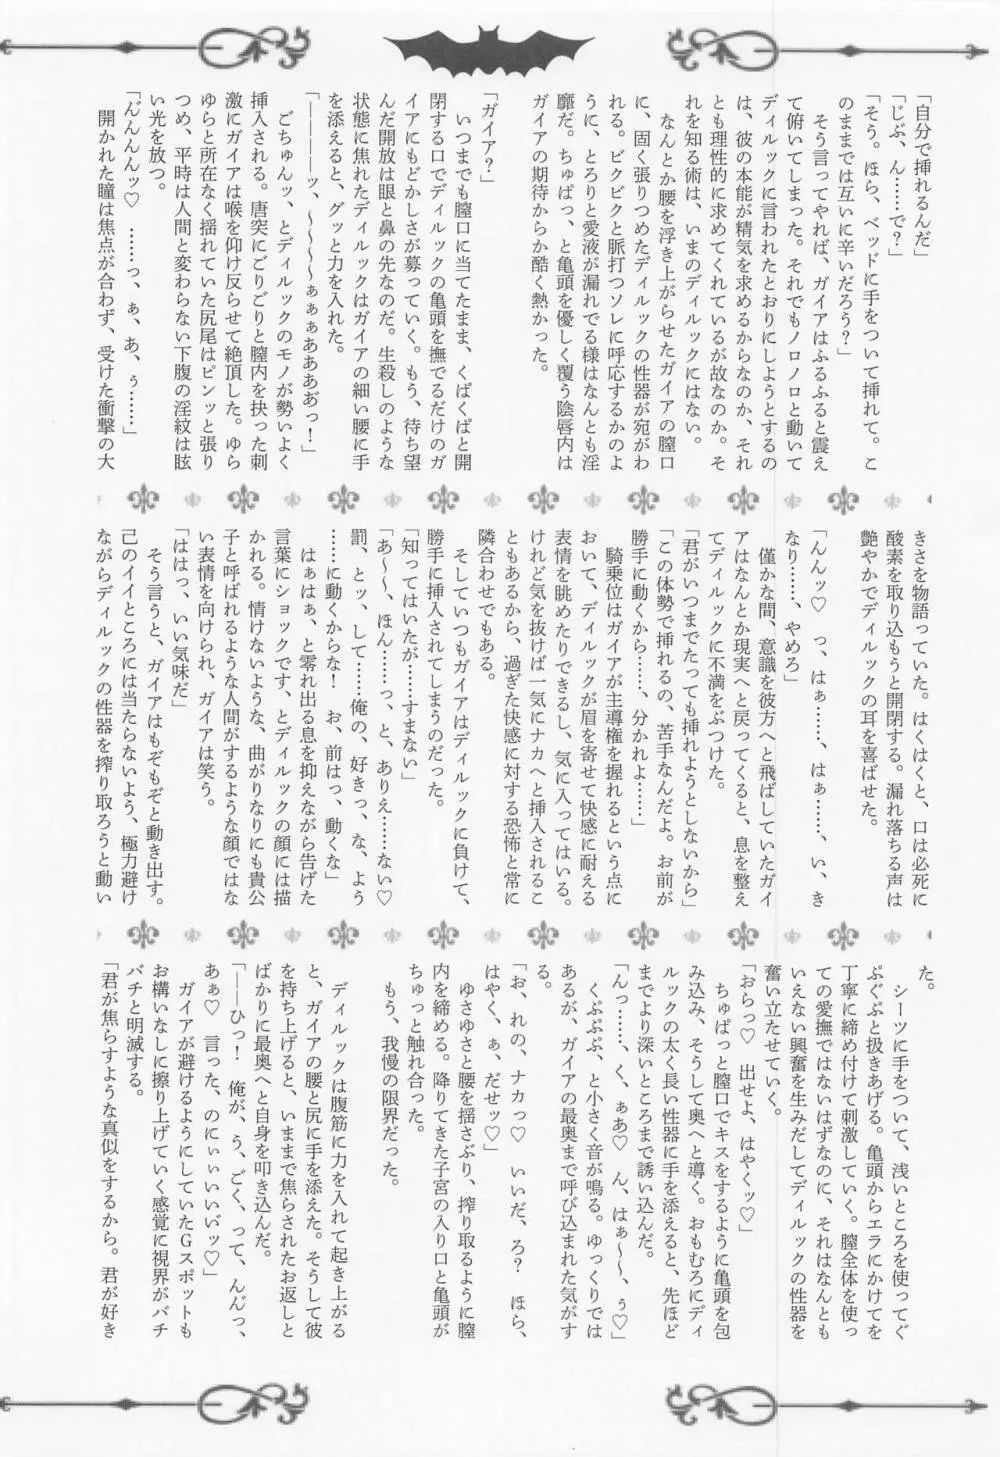 「自分で挿れるんだ」
「じぶ、ん……で？」
「そう。ほら、ベッドに手をついて挿れて。こ
のままでは互いに辛いだろう？」
　そう言ってやれば、ガイアはふるふると震え
て俯いてしまった。それでもノロノロと動いて
ディルックに言われたとおりにしようとするの
は、彼の本能が精気を求めるからなのか、それ
とも理性的に求めてくれているが故なのか。そ
れを知る術は、いまのディルックにはない。
　なんとか腰を浮き上がらせたガイアの膣口
に、固く張りつめたディルックの性器が宛がわ
れる。ビクビクと脈打つソレに呼応するかのよ
うに、とろりと愛液が漏れでる様はなんとも淫
靡だ。ちゅぱっ、と亀頭を優しく覆う陰唇内は
ガイアの期待からか酷く熱かった。
「ガイア？」
　いつまでも膣口に当てたまま、くぱくぱと開
閉する口でディルックの亀頭を撫でるだけのガ
イアにもどかしさが募っていく。もう、待ち望
んだ開放は眼と鼻の先なのだ。生殺しのような
状態に焦れたディルックはガイアの細い腰に手
を添えると、グッと力を入れた。
「————ッ、～～～～ぁぁぁああああ゛っ！」
　ごちゅんッ、とディルックのモノが勢いよく
挿入される。唐突にごりごりと膣内を抉った刺
激にガイアは喉を仰け反らせて絶頂した。ゆら
ゆらと所在なく揺れていた尻尾はピンッと張り
つめ、平時は人間と変わらない下腹の淫紋は眩
い光を放つ。
「ん゛んんんッ♡　……っ、ぁ、あ、ぅ……」
　開かれた瞳は焦点が合わず、受けた衝撃の大
きさを物語っていた。はくはくと、口は必死に
酸素を取り込もうと開閉する。漏れ落ちる声は
艶やかでディルックの耳を喜ばせた。
「んんッ♡　っ、はぁ……、はぁ……、い、き
なり……、やめろ」
　僅かな間、意識を彼方へと飛ばしていたガイ
アはなんとか現実へと戻ってくると、息を整え
てディルックに不満をぶつけた。
「君がいつまでたっても挿れようとしないから」
「この体勢で挿れるの、苦手なんだよ。お前が
勝手に動くから……、分かれよ……」
　騎乗位はガイアが主導権を握れるという点に
おいて、ディルックが眉を寄せて快感に耐える
表情を眺めたりできるし、気に入ってはいる。
けれど気を抜けば一気にナカへと挿入されるこ
ともあるから、過ぎた快感に対する恐怖と常に
隣合わせでもある。
　そしていつもガイアはディルックに負けて、
勝手に挿入されてしまうのだった。
「知ってはいたが……すまない」
「あ～～、ほん……っ、と、ありえ……ない♡
罰、とッ、して……俺の、好きっ、な、よう
……に動くからな！　お、前はっ、動くな」
　はぁはぁ、と零れ出る息を抑えながら告げた
言葉にショックです、とディルックの顔には描
かれる。情けないような、曲がりなりにも貴公
子と呼ばれるような人間がするような顔ではな
い表情を向けられ、ガイアは笑う。
「ははっ、いい気味だ」
　そう言うと、ガイアはもぞもぞと動き出す。
己のイイところには当たらないよう、極力避け
ながらディルックの性器を搾り取ろうと動い
た。
　シーツに手をついて、浅いところを使ってぐ
ぷぐぷと扱きあげる。亀頭からエラにかけてを
丁寧に締め付けて刺激していく。膣全体を使っ
ての愛撫ではないはずなのに、それはなんとも
いえない興奮を生みだしてディルックの性器を
奮い立たせていく。
「おらっ♡　出せよ、はやくッ♡」
　ちゅぱっと膣口でキスをするように亀頭を包
み込み、そうして奥へと導く。おもむろにディ
ルックの太く長い性器に手を添えると、先ほど
までより深いところまで誘い込んだ。
「んっ……、く、ぁあ♡　ん、はぁ～～、ぅ♡」
　くぷぷぷ、と小さく音が鳴る。ゆっくりでは
あるが、ガイアの最奥まで呼び込まれた気がす
る。
「お、れの、ナカっ♡　いいだ、ろ？　ほら、
はやく、ぁ、だせッ♡」
　ゆさゆさと腰を揺さぶり、搾り取るように膣
内を締める。降りてきた子宮の入り口と亀頭が
ちゅっと触れ合った。
　もう、我慢の限界だった。
　ディルックは腹筋に力を入れて起き上がる
と、ガイアの腰と尻に手を添えた。そうして彼
を持ち上げると、いままで焦らされたお返しと
ばかりに最奥へと自身を叩き込んだ。
「——ひっ！　俺が、う、ごく、って、ん゛っ、
あぁ♡　言った、のにぃぃいい゛ッ♡」
　ガイアが避けるようにしていたGスポットも
お構いなしに擦り上げていく感覚に視界がバチ
バチと明滅する。
「君が焦らすような真似をするから。君が好き